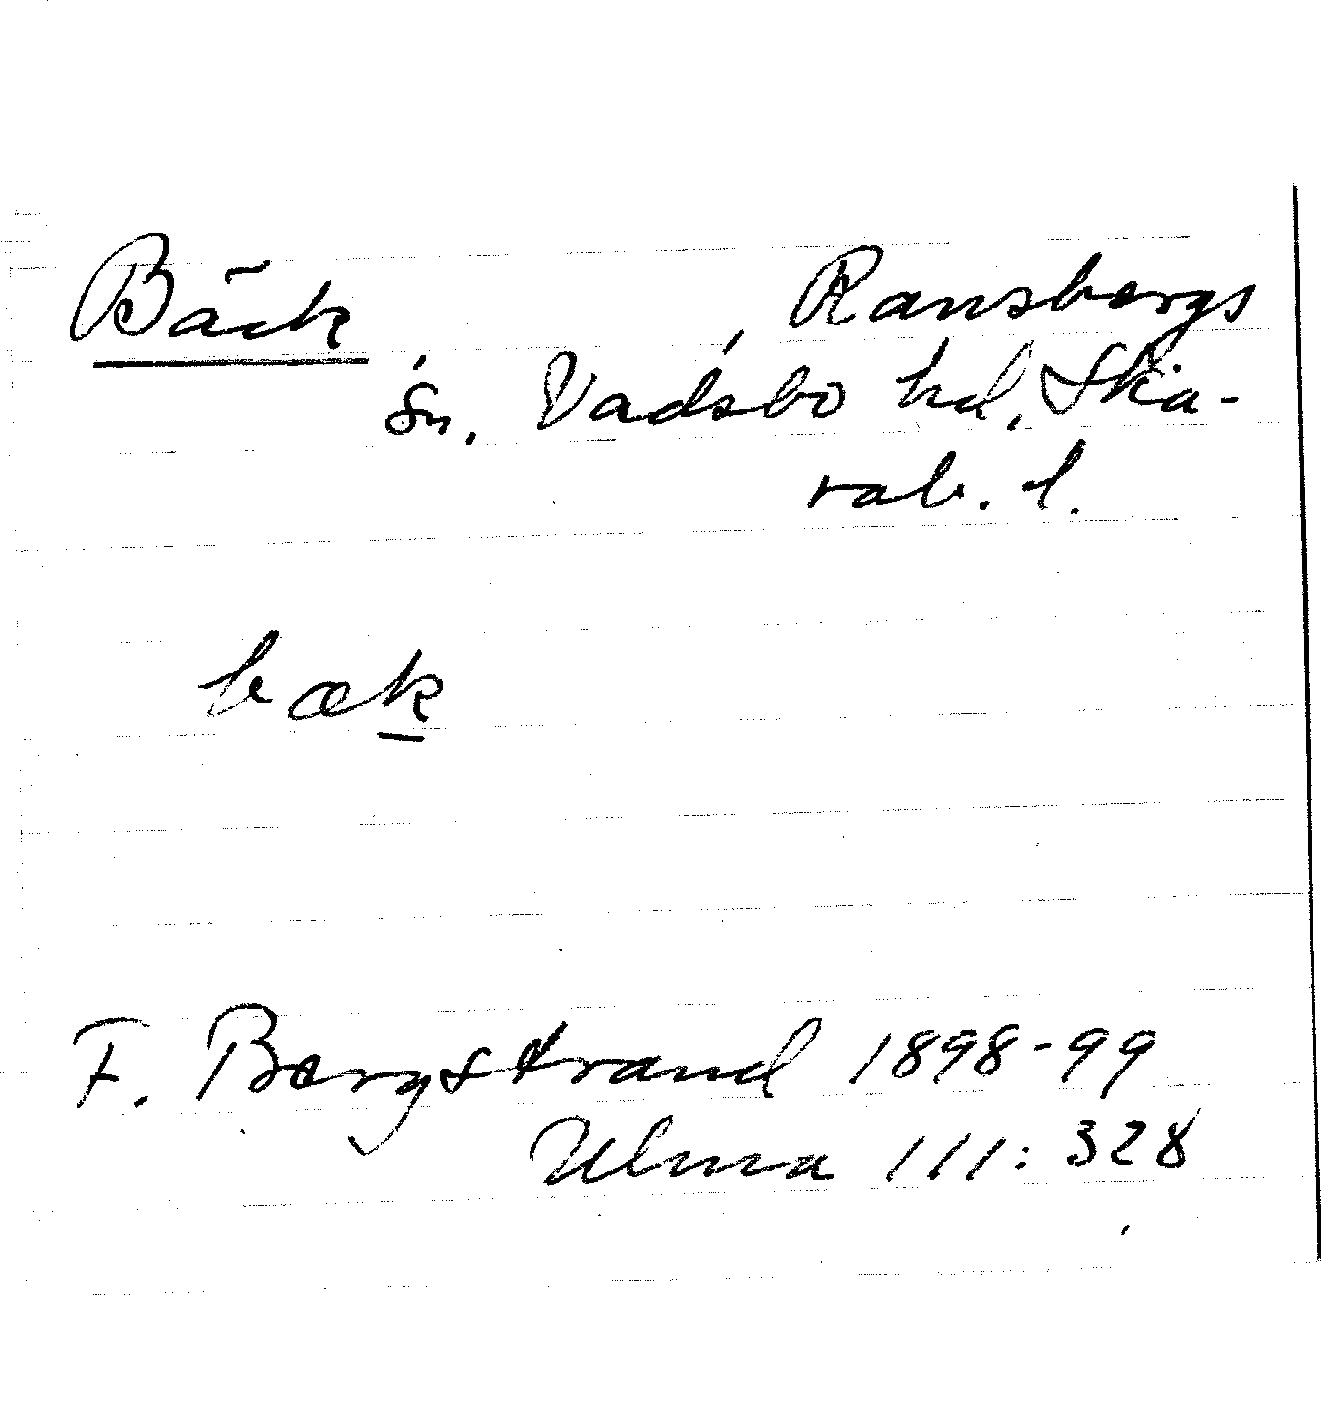 Bäck
Ransbergs
sn. Vadsbo hd, Ska-
rab. l.
bæk
F. Bergstrand 1898-99
Ulma 111:328